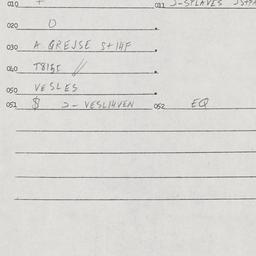 010 + 011 2-STLAVES
020 0
030 A GREJSE 5+14F
040 T8151 //
050 VESLES
051 $ 2- VESLIHVEN 052 EQ